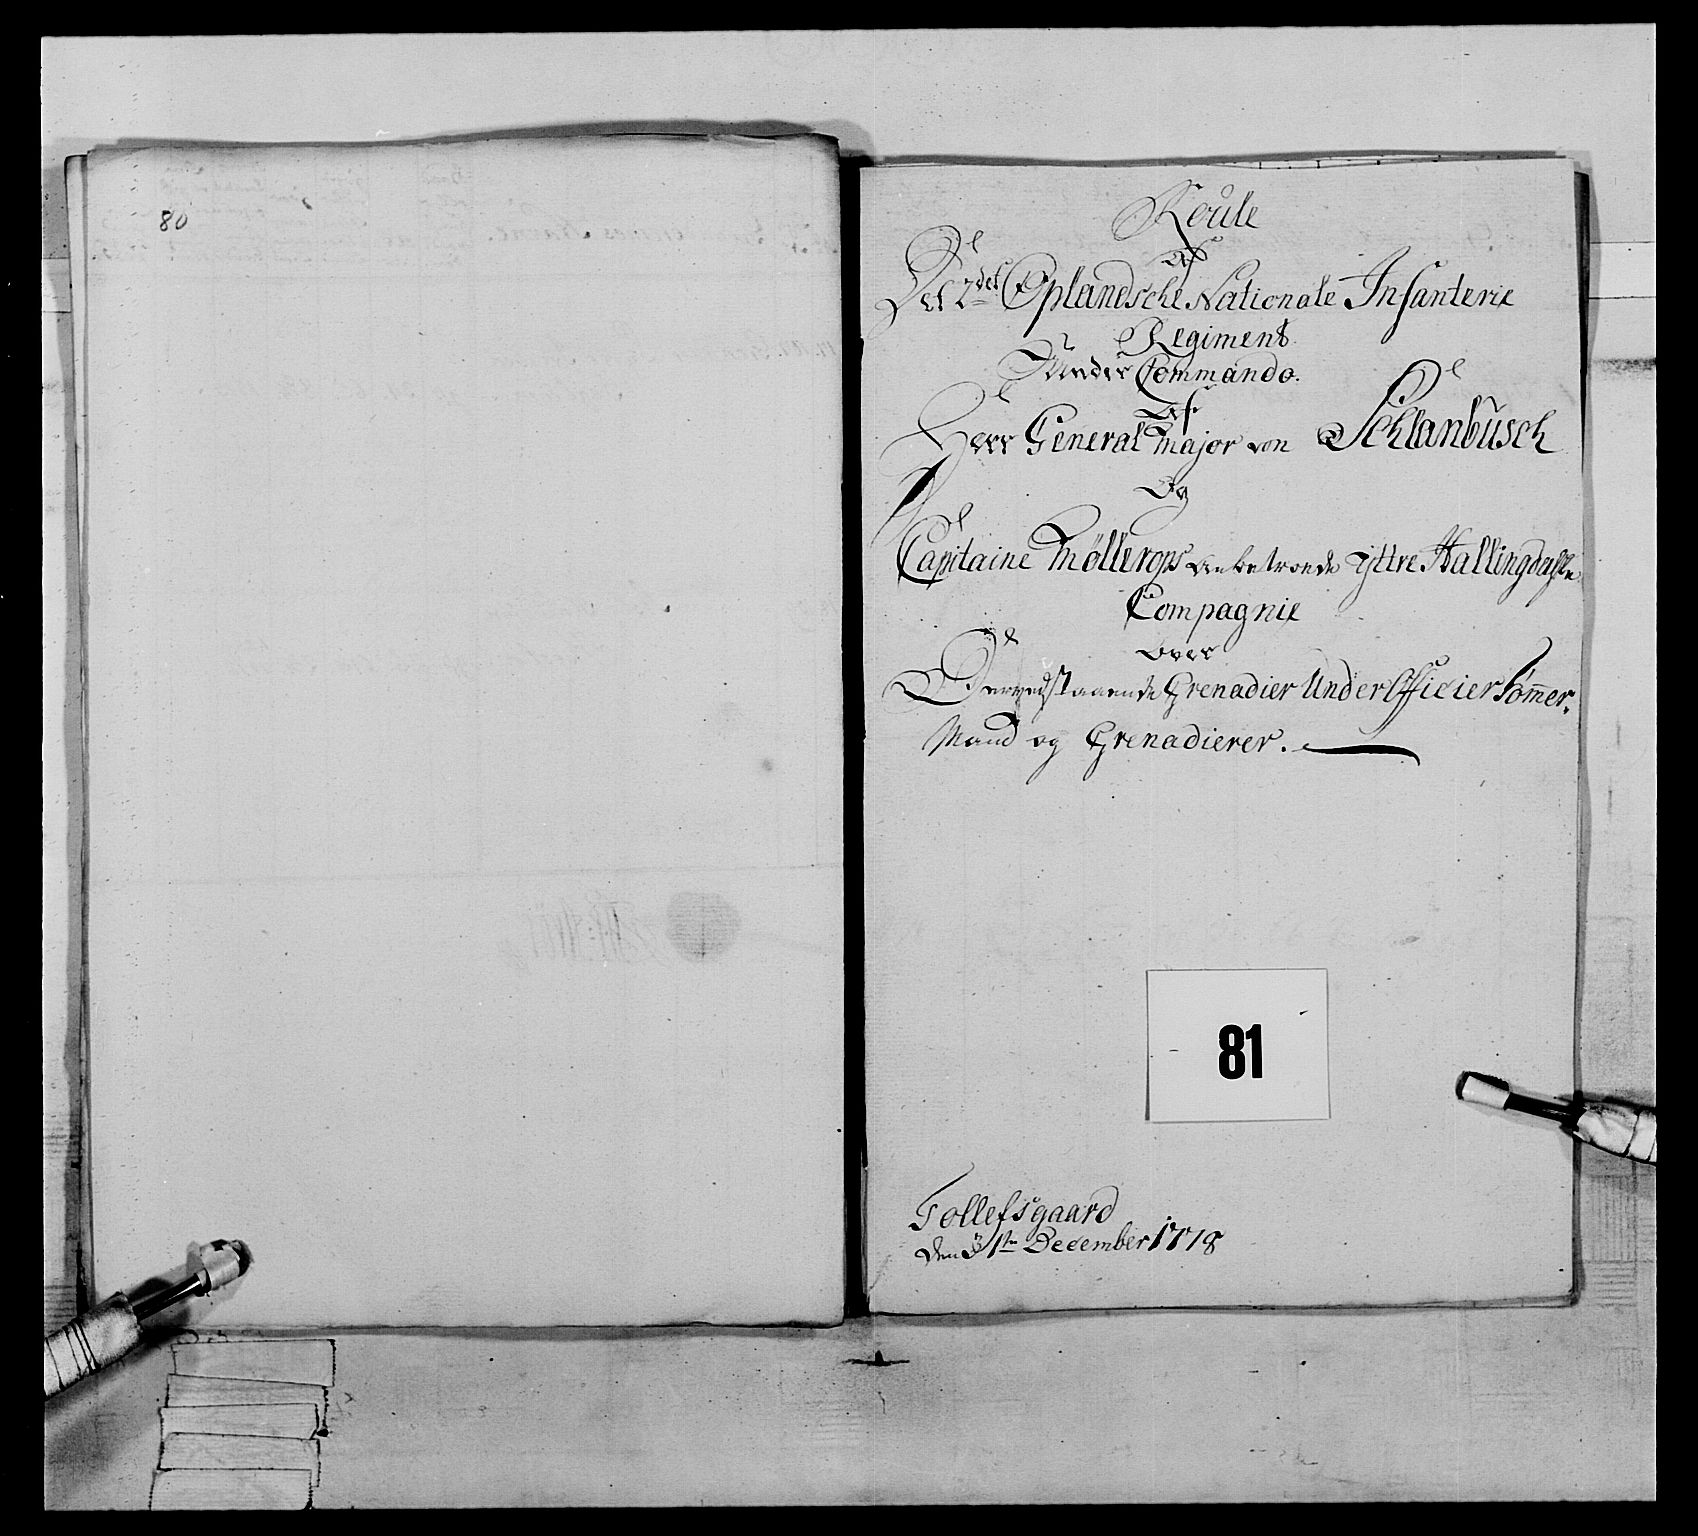 80
Roule
Af
Det 2det Oplandsche Nationale Infanterie
Regiment
Under Commando.
Af
Herr General Major von Schlanbusch
Og
Capitaine Møllerops anbetroede yttre Hallingdahlske
Compagnie
over
Dervedstaaende Grenadier Under Officier Tømer-
Mand og Grenadierer.
81
Tollefsgaard
den 31te December 1778